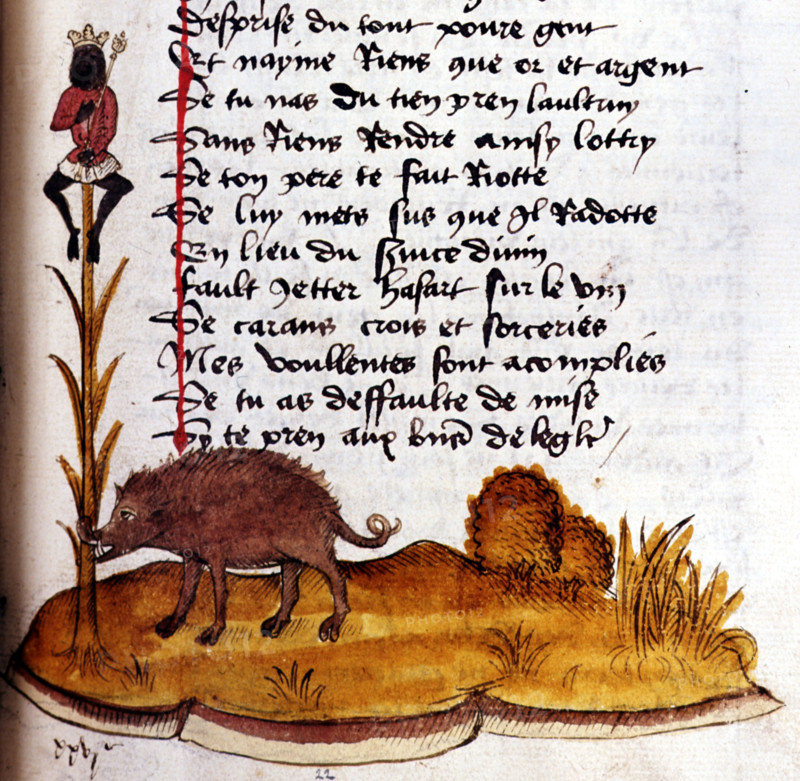 desprise du tout poure gent
Et nayme Riens que or et argent
Se tu nas du tien pren laultruy
Sans Riens Rendre ainsy lottry
Se ton pere te fait Riotte
Se luy mets sus que Il Radotte
En lieu du suice diuin
fault Jetter hasart sur le vin
De carans crois et sorceries
Mes voullentes sont acomplies
Se tu as deffaulte de mise
Sy te pren aux de
xxvj
22